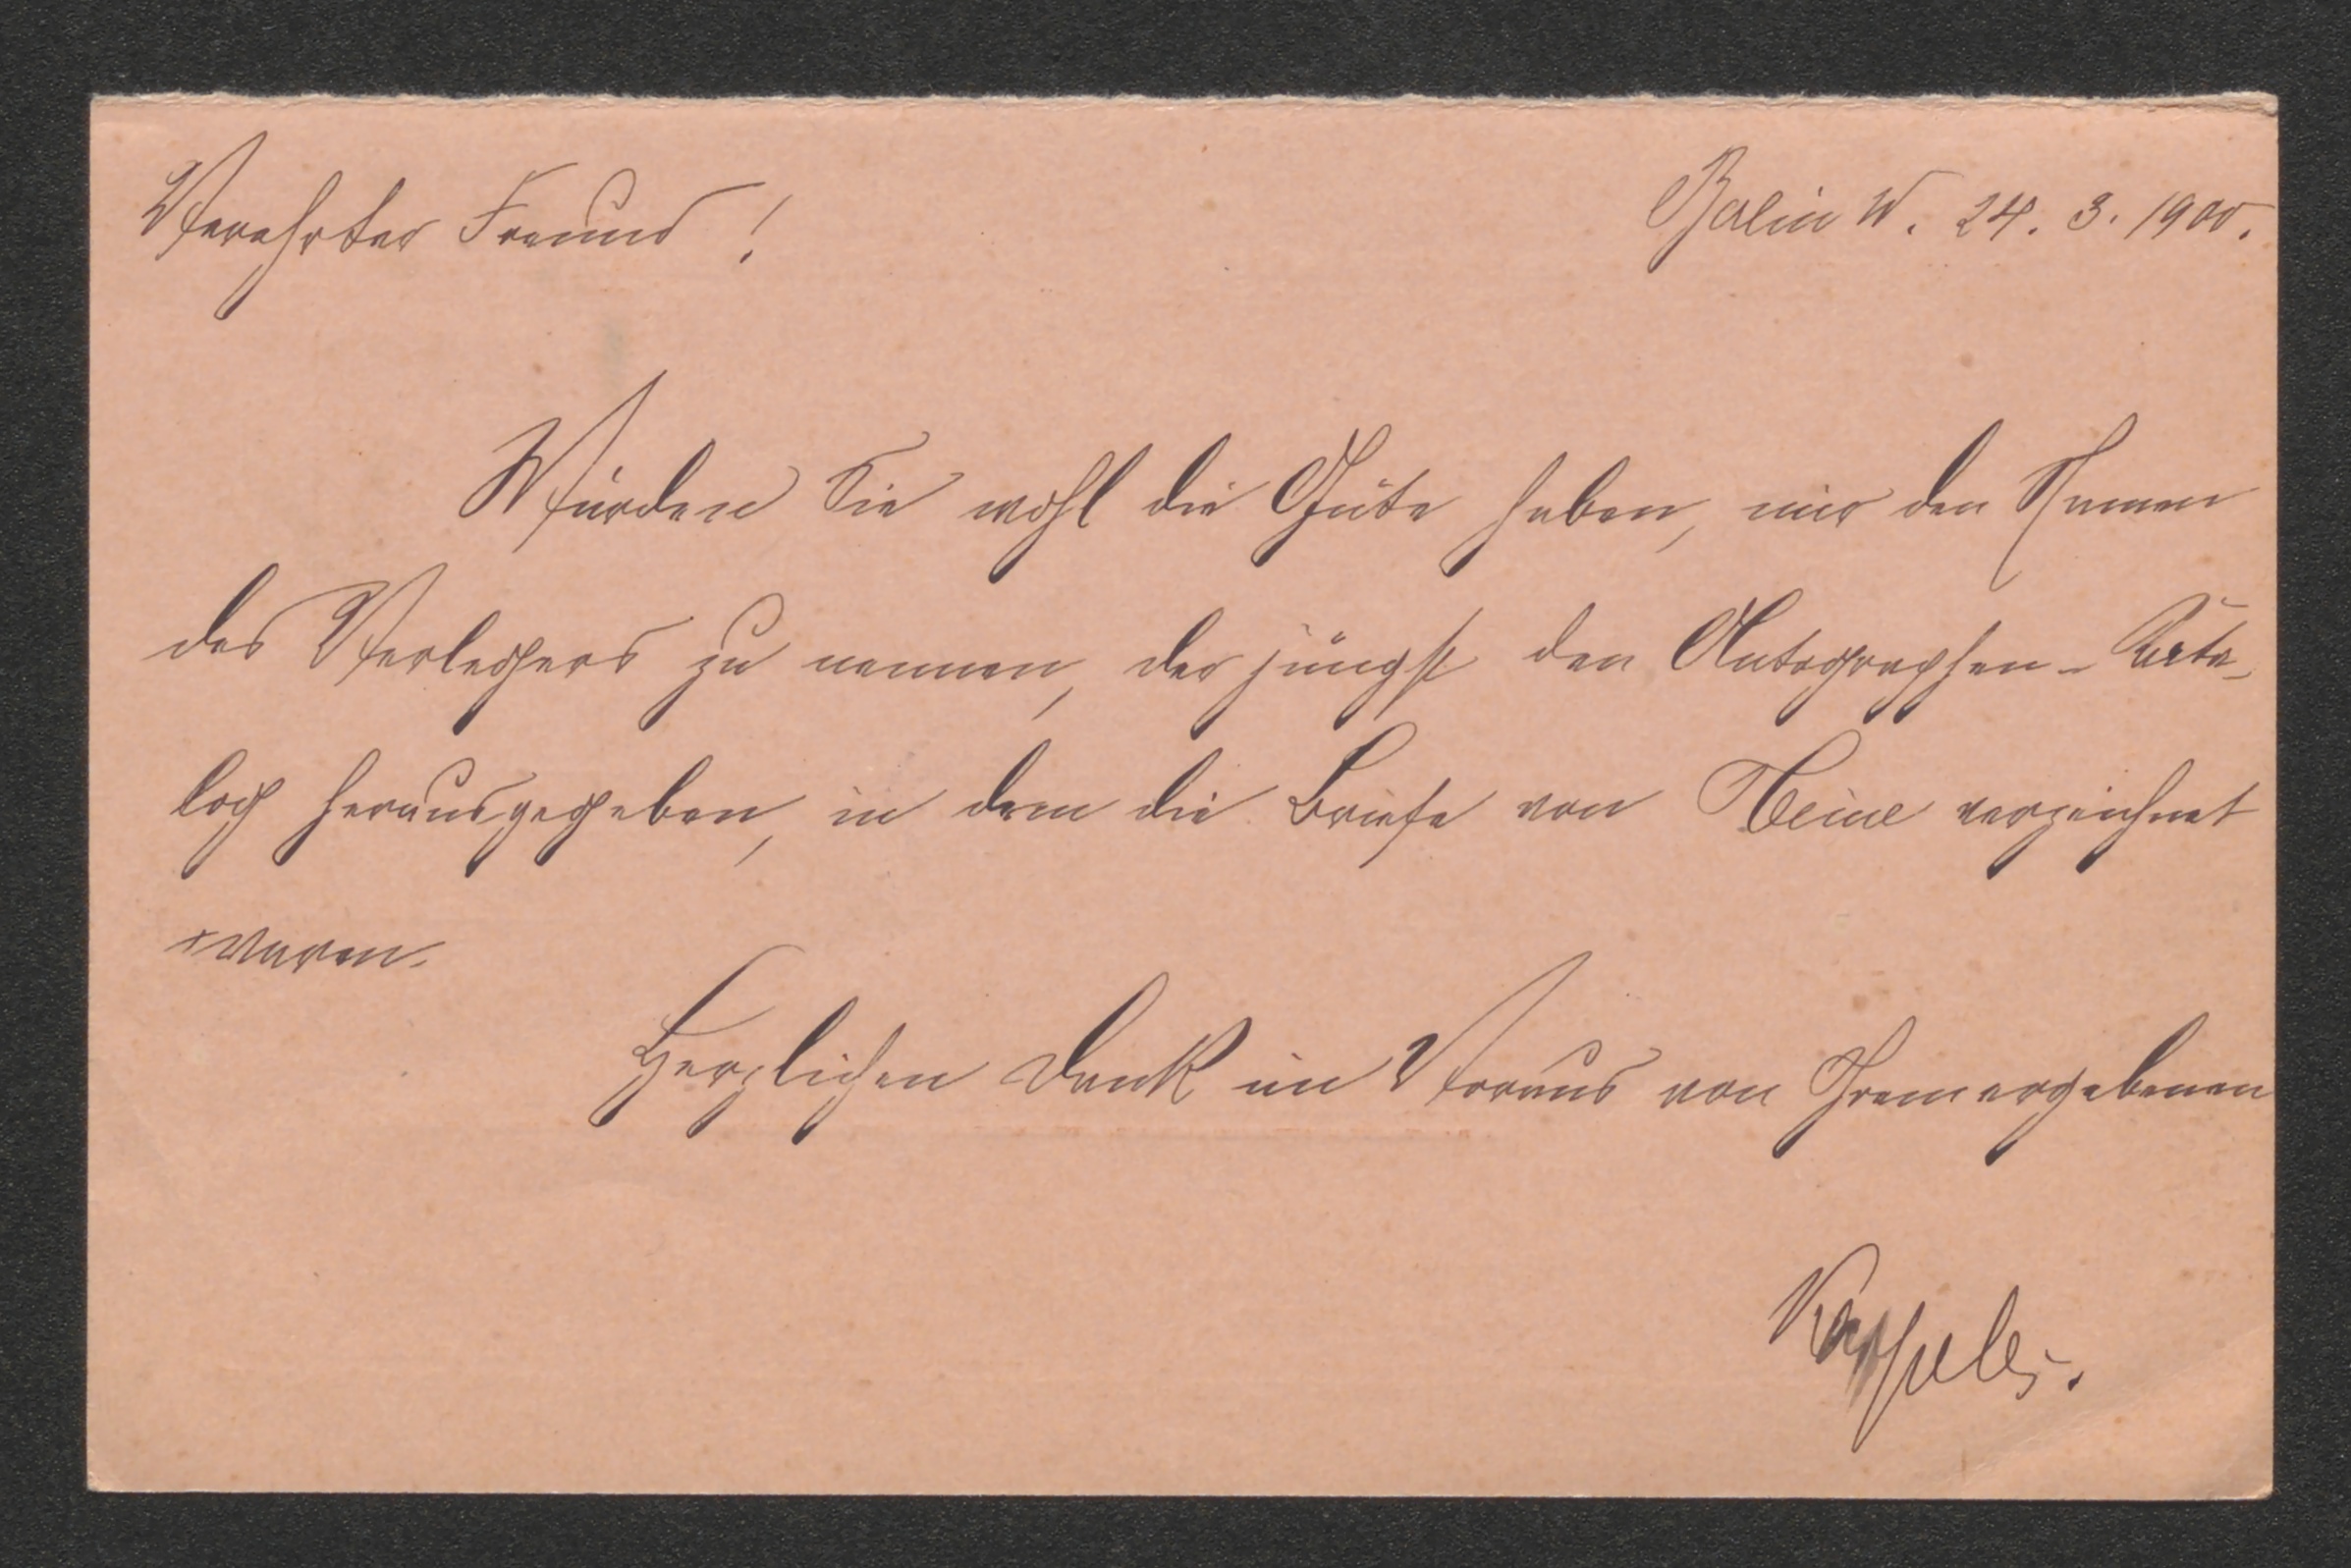 Verehrter Freund! Berlin W. 24. 3. 1900.
Würden Sie wohl die Güte haben, mir den Namen
des Verlegers zu nennen, der jüngst den Autographen-Kata-
log herausgegeben, in dem die Briefe von Heine verzeichnet
waren.
Herzlichen Dank im Voraus von Ihrem ergebenen
Karpeles.